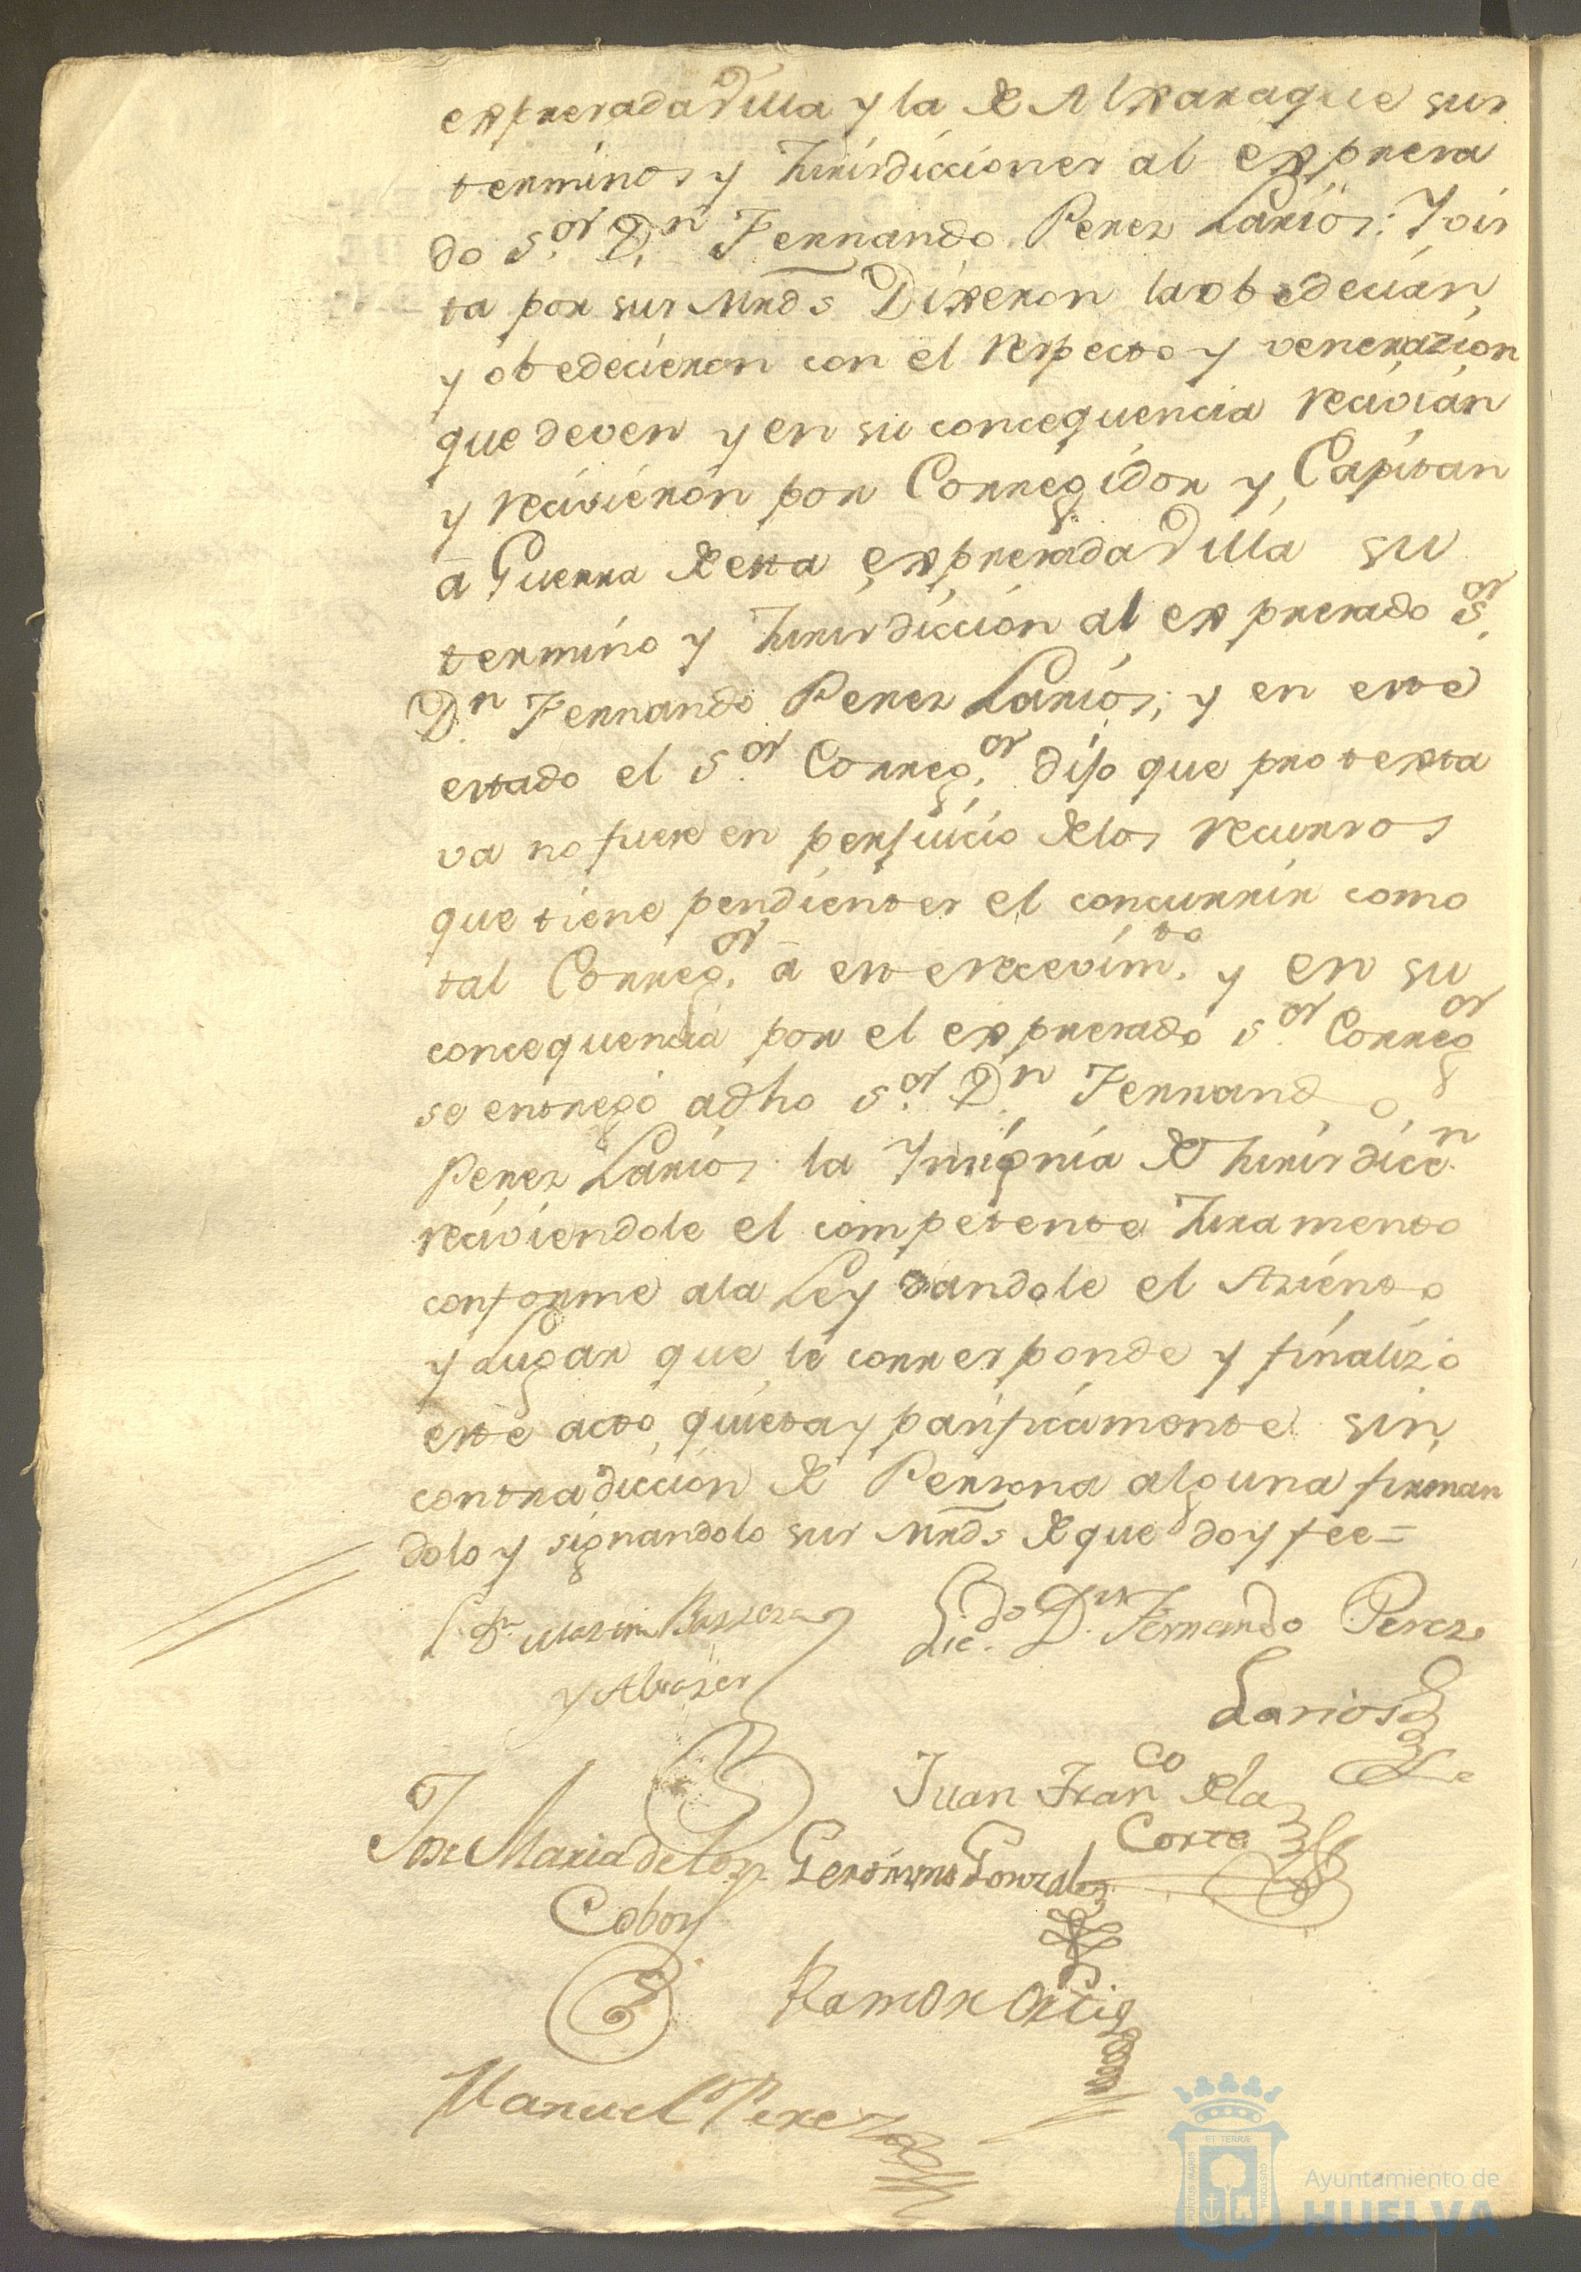 expresada Villa y la de Aljaraque sus
terminos y Jurisdicciones al expresa
do S.or D.n Fernando Perez Larios: Y ois
ta por sus Mrds Dixeron la obedecian
y obedecieron con el respecto y venerazion
que deven y en su concequencia recivian
y recivieron por Corregidor y Capitan
à Guerra de esta expresada Villa su
termino y Jurisdiccion al expresado S.or
D.n Fernando Perez Larios; y en este
estado el S.or Correg.or dijo que protexta
va no fuese en perjuicio de los recursos
que tiene pendientes el concurrir como
tal Correg.or à este recevim.to y en su
concequencia por el expresado S.or Correg.or
se entregó adho S.or D.n Fernando
Perez Larios la Ynsignia de Jurisdicc.n
reciviendole el competente Juramento
conforme ala Ley dandole el Aziento
y Lugar que le corresponde y finalizó
este acto quieta y pasificamente sin
contradiccion de Persona alguna firman
dolo y signandolo sus Mrds de que doy fee=
Lic.do D.n Fernando Perez
Larios
Juan Fran.co de la
Corte
Jose Maria de los
Cobos
Geronimo Gonzalez
Ramon Ortiz
Manuel Perez
PORTUS MARIS
ET TERRÆ
CUSTODIA
Ayuntamiento de
HUELVA